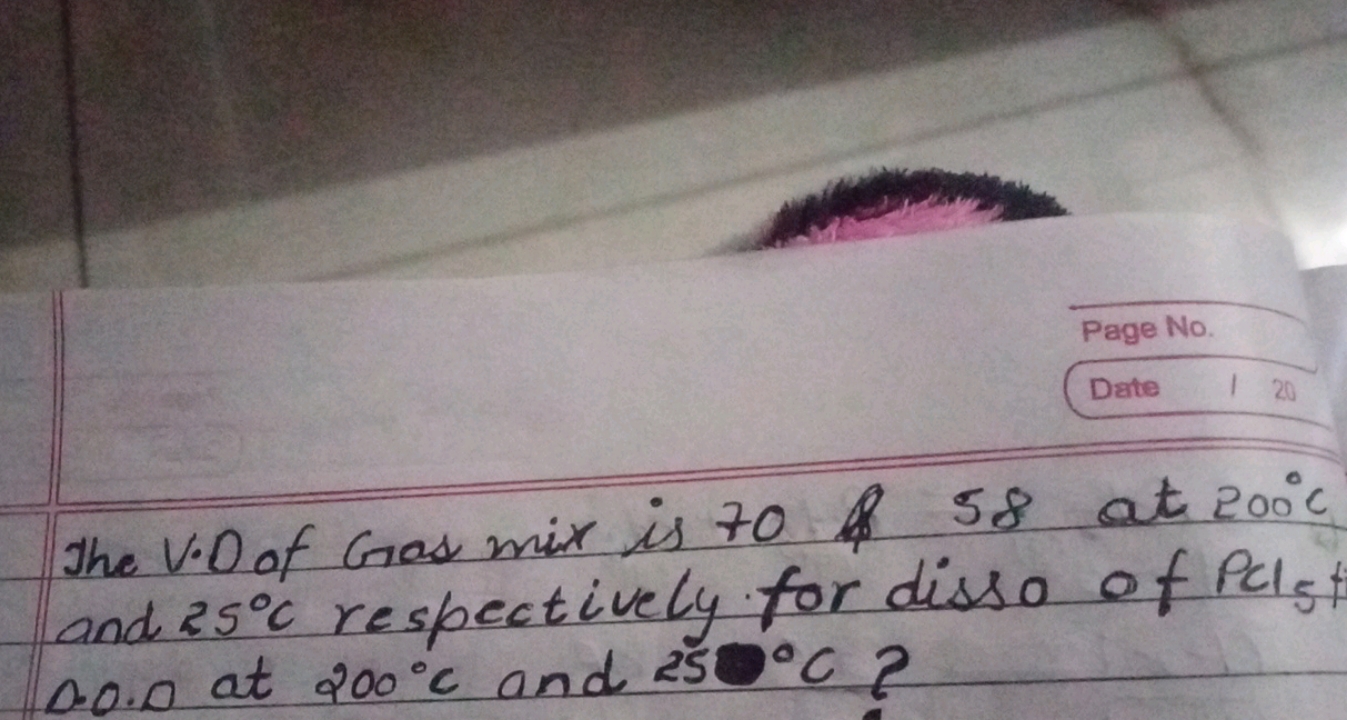 Page No.
Date / 20
The V.D of Gas mix is 70 & 58 at 200°C
and 25°C respectively. for disso of PCl5
D.O.D at 200°C and 25 °C ?